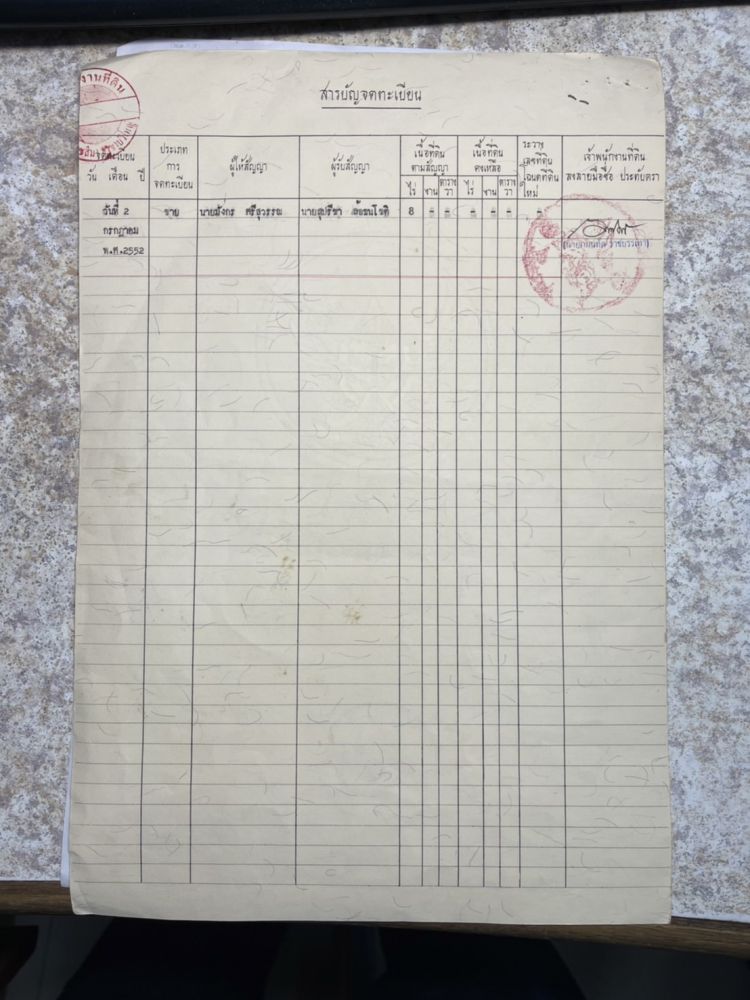 งานที่ดิน
สารบัญจดทะเบียน
จดทะเบียน
วัน เดือน ปี
ประเภท
การ
จดทะเบียน
ผู้ให้สัญญา
ผู้รับสัญญา
เนื้อที่ดิน
ตามสัญญา
ไร่ งาน ตาราง
วา
เนื้อที่ดิน
คงเหลือ
ไร่ งาน ตาราง
วา
ระวาง
เลขที่ดิน
โฉนดที่ดิน
ใหม่
เจ้าพนักงานที่ดิน
ลงลายมือชื่อ ประทับตรา
วันที่ 2 ขาย นายมังกร ศรีสุวรรณ นายสุปรีชา 8 - - - - - -
กรกฎาคม
พ.ศ.2552